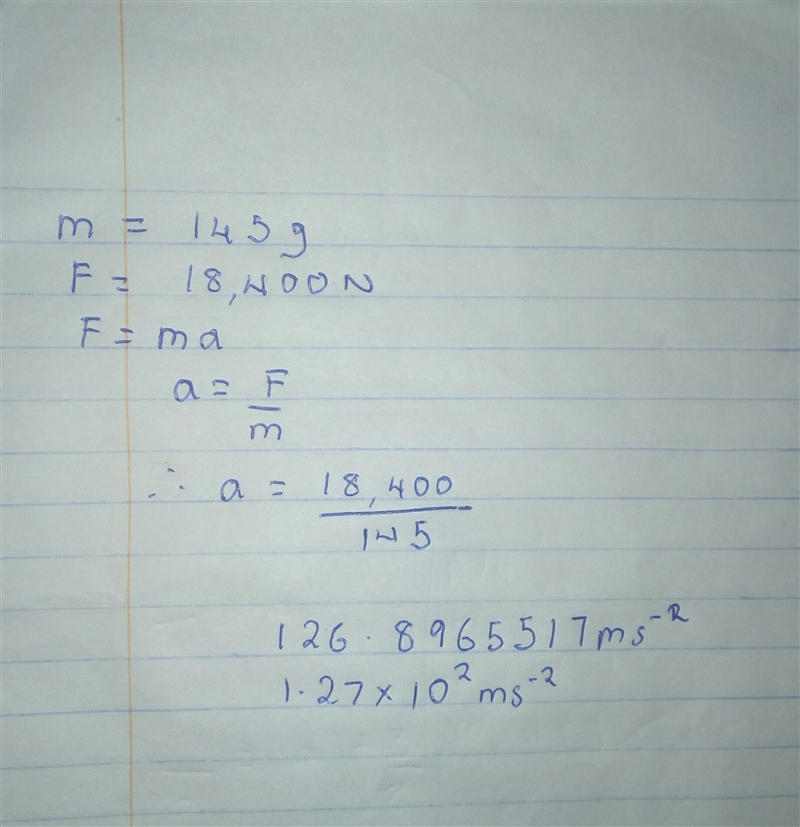 m = 145g
F = 18,400N
F = ma
a = F/m
∴ a = 18,400/145
126.8965517ms⁻²
1.27 × 10² ms⁻²